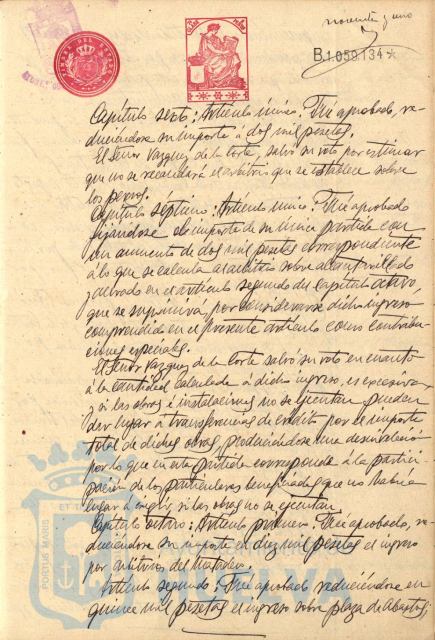 noventa y uno
B.1.059.134*
Capítulo sexto: Artículo único: Fué aprobado, re-
duciéndose su importe á dos mil pesetas.
El Señor Vazquez de la Corte, salvó su voto por estimar
que no se recaudará el arbitrio que se establece sobre
los perros.
Capítulo séptimo: Artículo único: Fué aprobado
fijándose el importe de su única partida con
un aumento de dos mil pesetas correspondiente
á lo que se calcula al arbitrio sobre alcantarillado
y alivrado en el artículo segundo del capítulo octavo,
que se suprimirá, por considerarse dicho ingreso
comprendido en el presente artículo como contribu-
ciones especiales.
El Señor Vazquez de la Corte salvó su voto en cuanto
á la cantidad calculada á dicho ingreso, es excesiva,
y si las obras é instalaciones no se ejecutan pueden
dar lugar á transferencias de crédito por el importe
total de dichas obras, produciéndose una desnivelación
por lo que en esta partida corresponde á la partici-
pación de los particulares beneficiados que no habría
lugar á exigir, si las obras no se ejecutan.
Capítulo octavo: Artículo primero: Fué aprobado, re-
duciéndose su importe el diez mil pesetas el ingreso
por arbitrios del Matadero.
Artículo segundo: Fué aprobado reduciéndose en
quince mil pesetas el ingreso sobre plaza de Abastos;
PORTUS MARIS
HUELVA